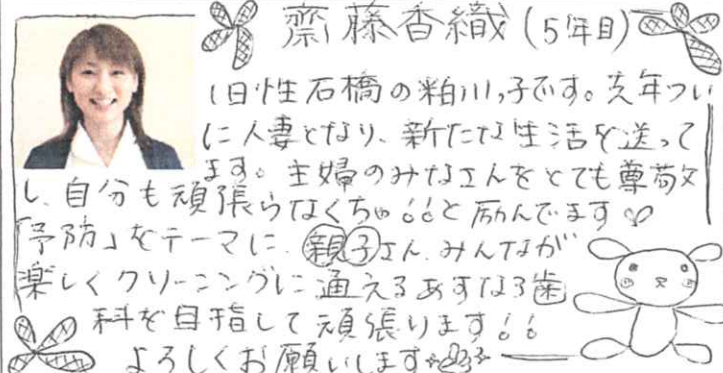 齋藤香織(5年目)
旧性石橋の粕川っ子です。先年つい
に人妻となり、新たな生活を送って
ます。主婦のみなさんをとても尊敬
し、自分も頑張らなくちゃ!!と励んでます♡
「予防」をテーマに、親子さん、みんなが
楽しくクリーニングに通えるあすなろ歯
科を目指して頑張ります!!
よろしくお願いします